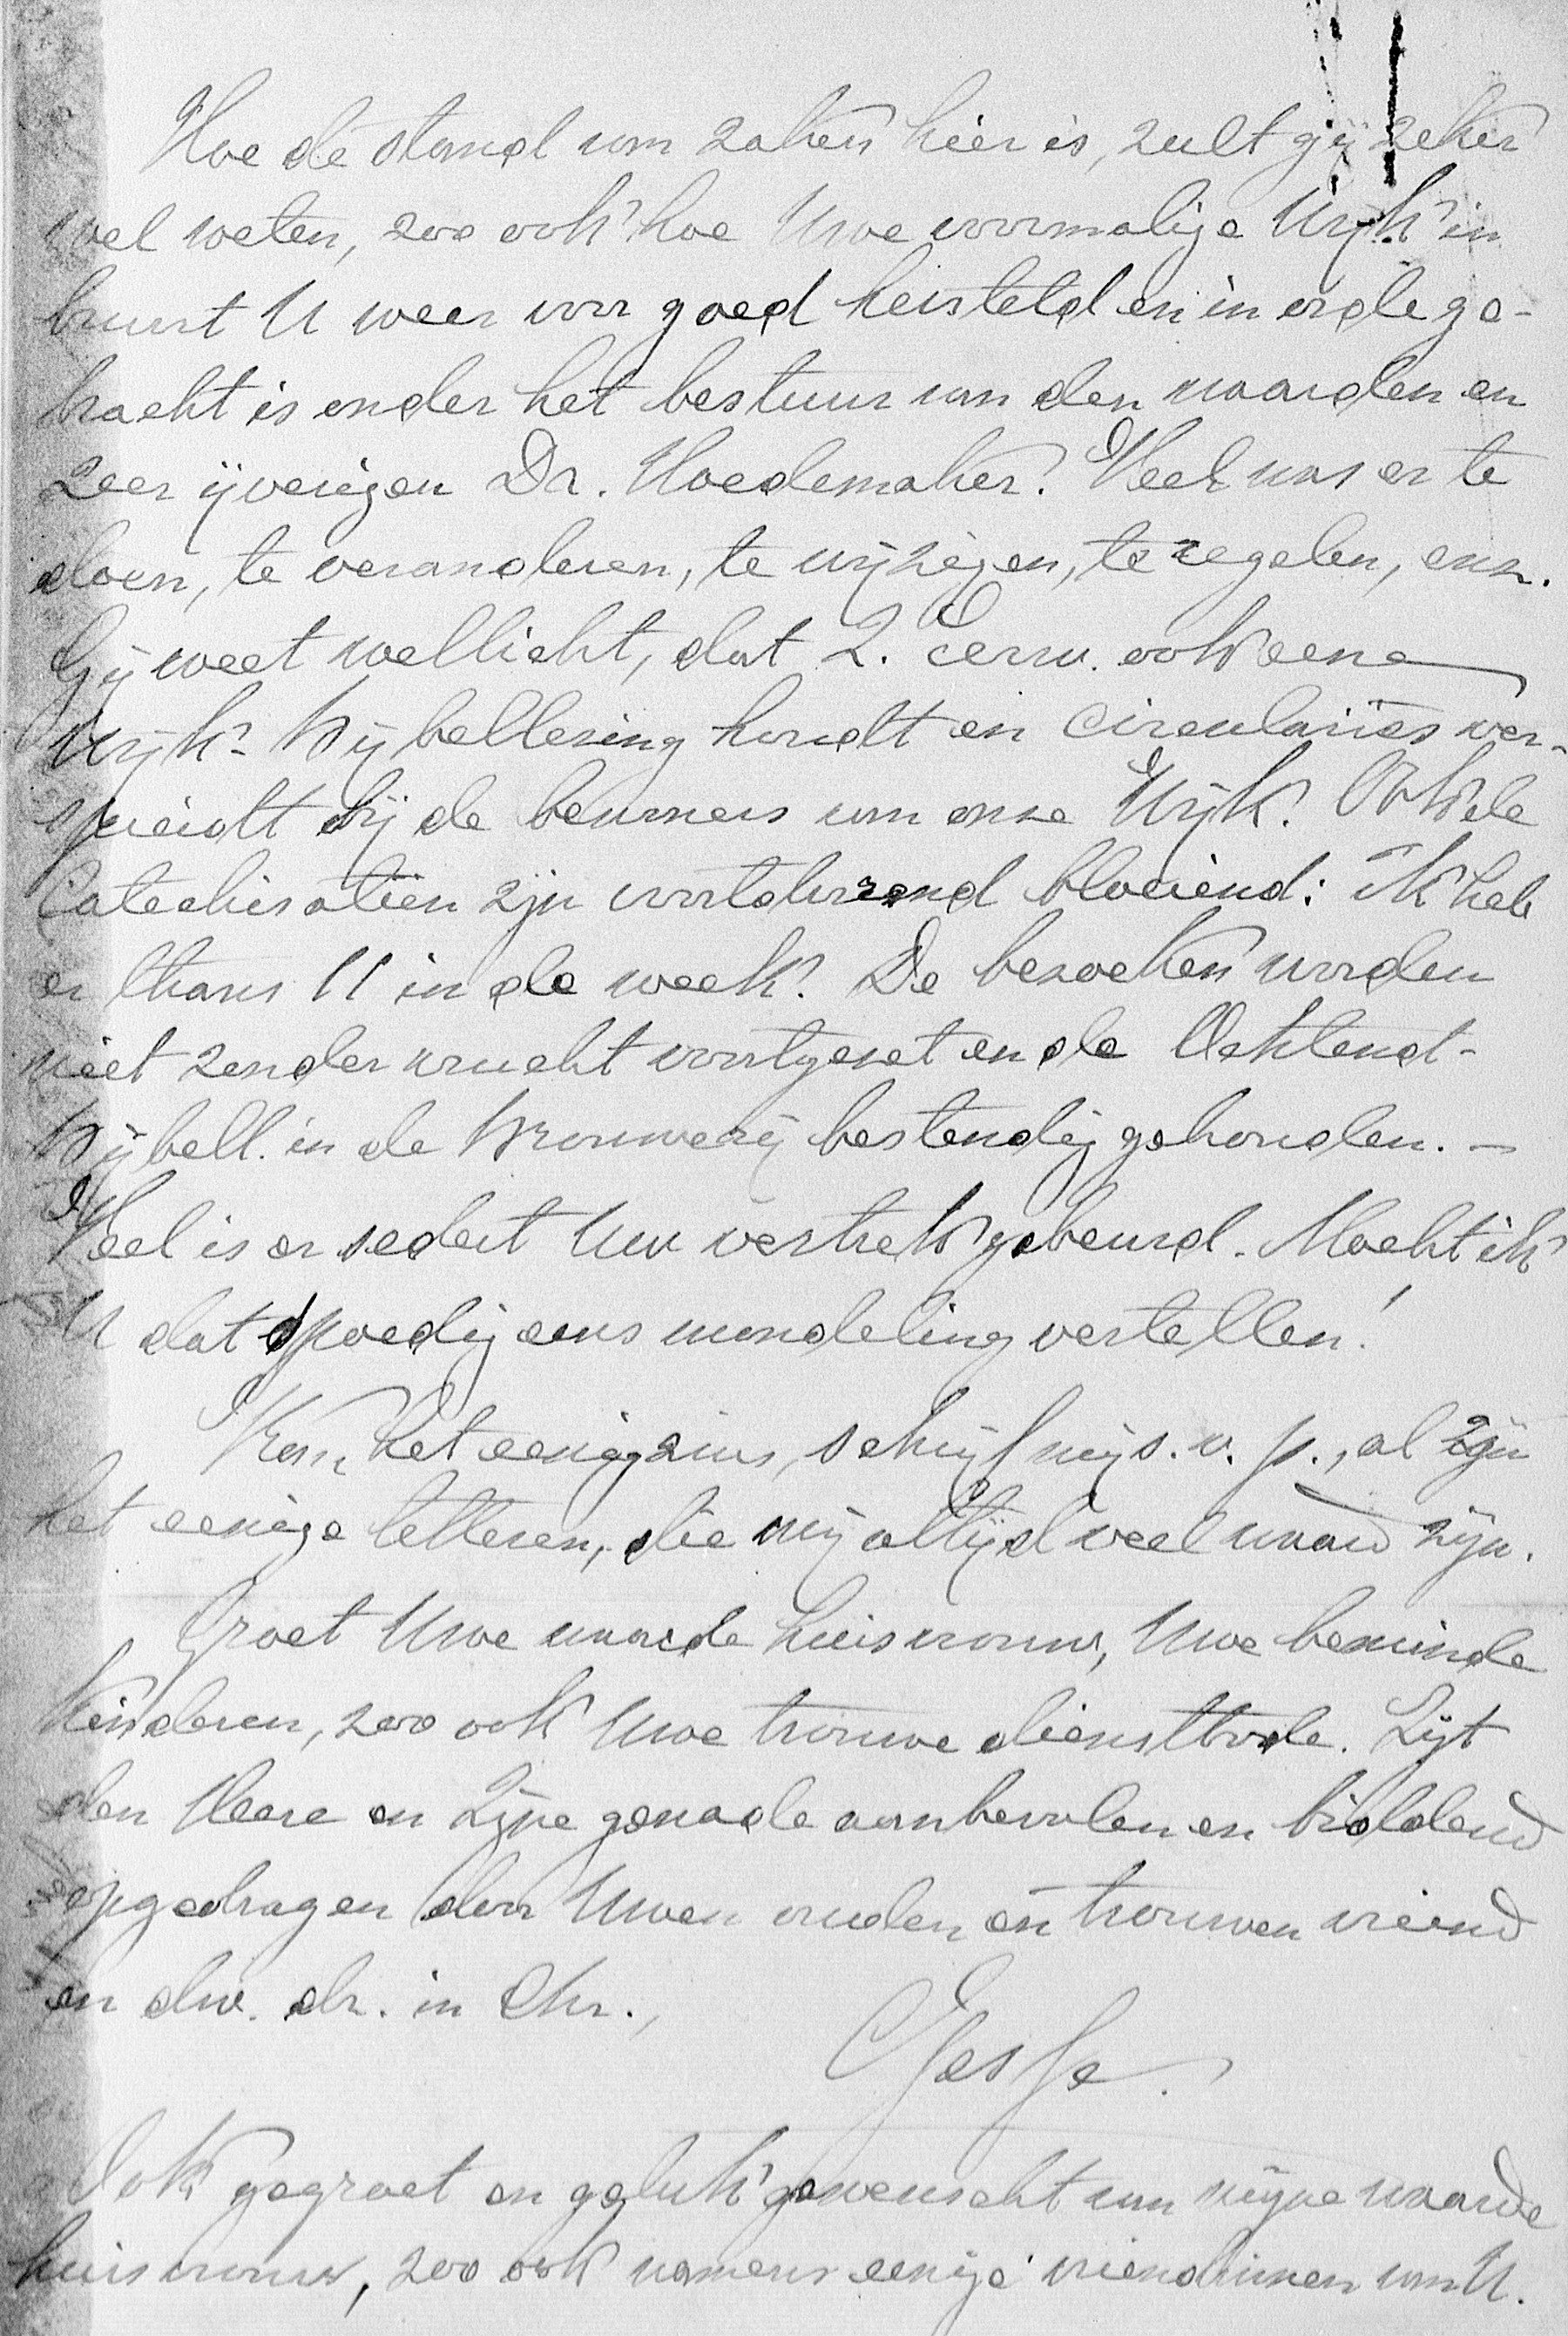 Hoe de stand van zaken hier is, zult gij zeker
wel weten, zoo ook hoe Uwe voormalige Wijk in
buurt U weer voor goed hersteld en in orde ge-
bracht is onder het bestuur van den waarden en
zeer ijverigen Dr. Hoedemaker. Veel was er te
doen, te veranderen, te wijzigen, te regelen, enz.
Gij weet wellicht, dat Z. Eerw. ook eene
Wijk-Bijbellezing houdt en circulaires ver-
spreidt bij de bewoners van onze Wijk. Ook de
Catechisatiën zijn voortdurend bloeiend: ik heb
er thans 11 in de week. De bezoeken worden
niet zonder vrucht voortgezet en de Ochtend-
Bijbell. in de Brouwerij bestendig gehouden. —
Veel is er sedert Uw vertrek gebeurd. Mocht ik
U dat spoedig eens mondeling vertellen!
Kan het eenigzins, schrijf mij s. v. p., al zijn
het eenige letteren, die mij altijd veel waard zijn.
Groet Uwe waarde huisvrouw, Uwe beminde
Kinderen, zoo ook Uwe trouwe dienstbode. Zijt
den Heere en Zijne genade aanbevolen en biddend
opgedragen door Uwen ouden en trouwen vriend
en dw. dr. in Chr.,
Ook gegroet en geluk gewenscht van mijne waarde
huisvrouw, zoo ook namens eenige vriendinnen van U.